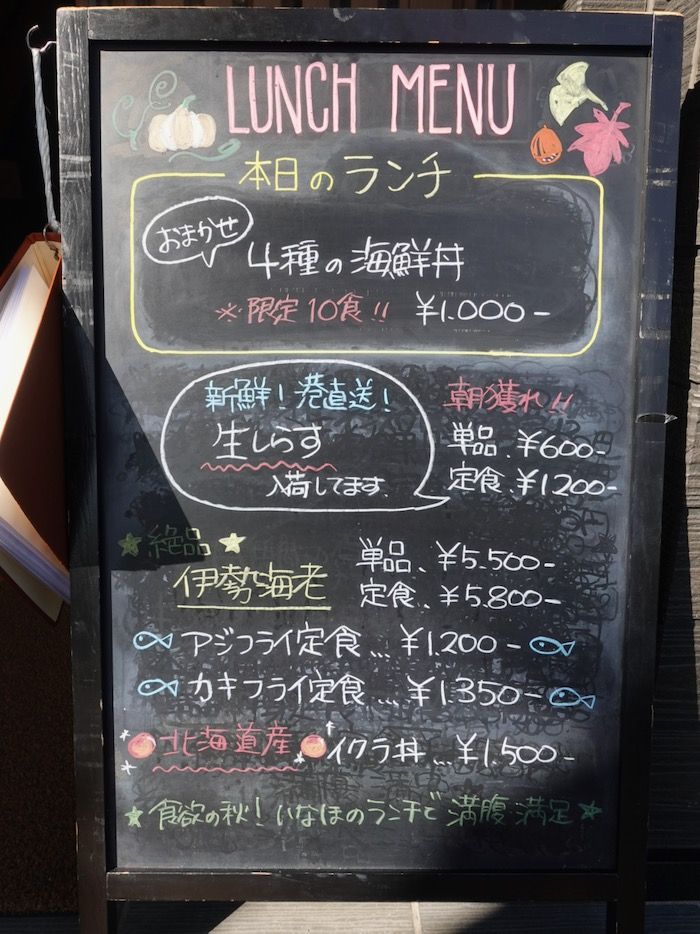 LUNCH MENU
本日のランチ
おまかせ
4種の海鮮丼
※限定10食!! ¥1.000-
新鮮!港直送!
生しらす
入荷してます
朝獲れ!!
単品、¥600-
定食、¥1200-
★絶品★
伊勢海老
単品、¥5.500-
定食、¥5.800-
アジフライ定食…¥1.200-
カキフライ定食…¥1.350-
北海道産 イクラ丼…¥1.500-
★食欲の秋!いなほのランチで満腹満足★